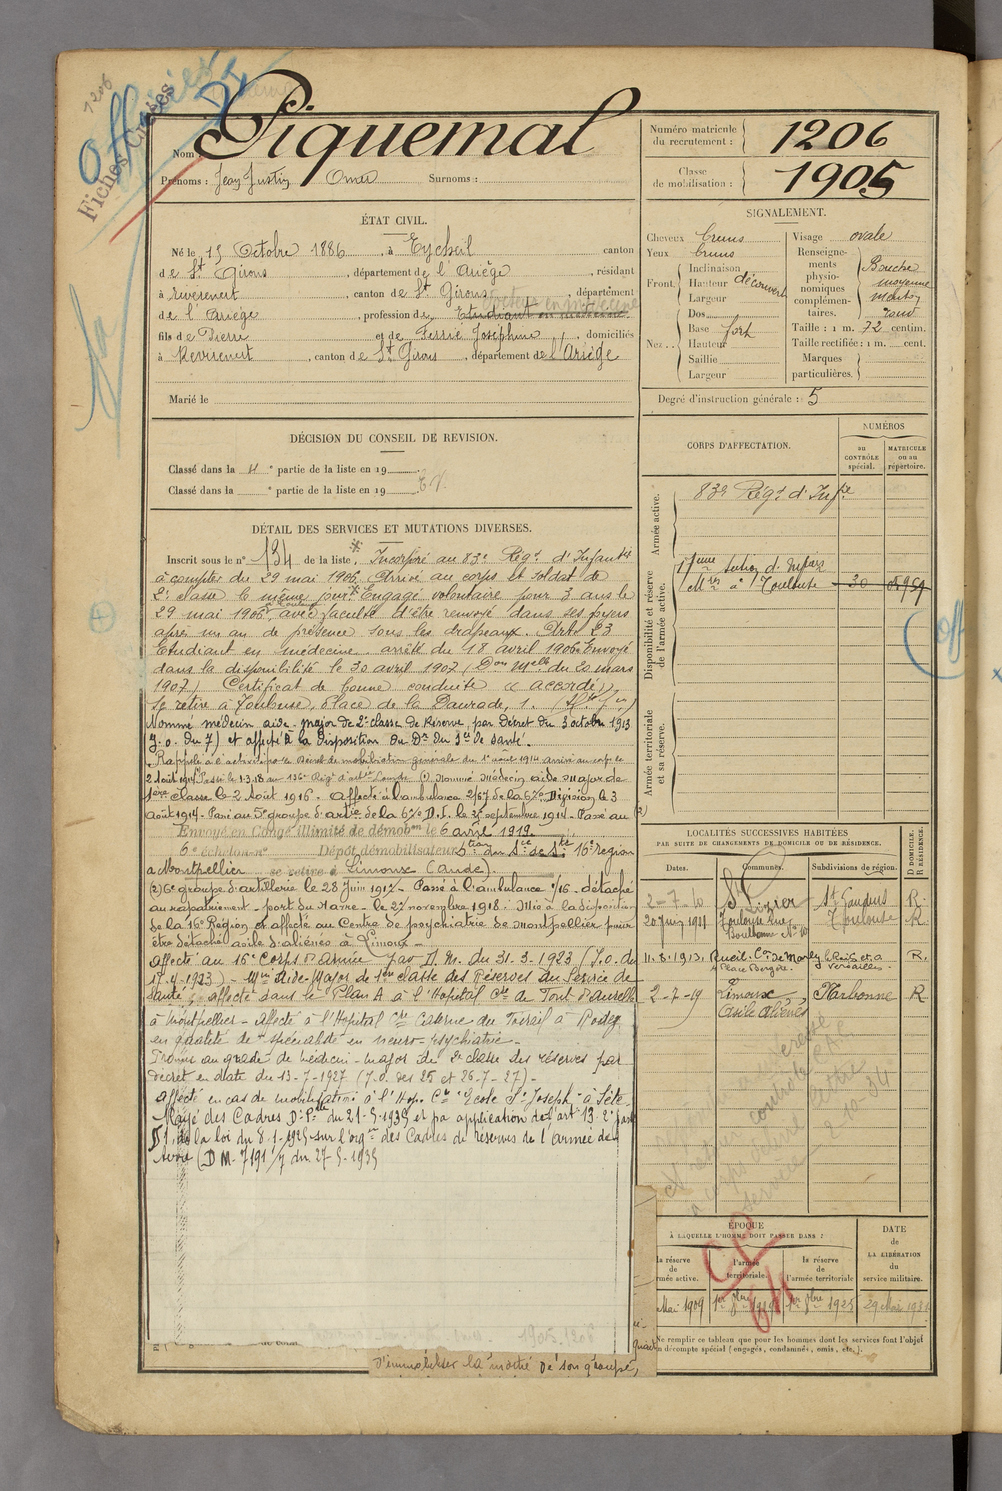 1206
Officier
DI
Fiches Croisées
Nom : Piquemal
Prénoms : Jean Justin Omer Surnoms :
Numéro matricule du recrutement : 1206
Classe de mobilisation : 1905
ÉTAT CIVIL.
Né le 15 Octobre 1886, à Eycheil canton
de St Girons, département de l'Ariège, résidant
à Rivèrenert, canton de St Girons département
Docteur en médecine
de l'Ariège, profession de Etudiant en médecine
fils de Pierre et de Ferrié Joséphine, domiciliés
à Rivèrenert, canton de St Girons, département de l'Ariège
Marié le
SIGNALEMENT.
Cheveux bruns
Yeux bruns
Front. Inclinaison
Hauteur découvert
Largeur
Nez.. Dos
Base fort
Hauteur
Saillie
Largeur
Visage ovale
Renseignements physionomiques complémentaires.
Bouche
moyenne
menton
rond
Taille : 1 m. 72 centim.
Taille rectifiée : 1 m. cent.
Marques particulières.
Degré d'instruction générale : 5
DÉCISION DU CONSEIL DE REVISION.
Classé dans la 4e partie de la liste en 19
Classé dans la e partie de la liste en 19 E.V.
CORPS D'AFFECTATION.
NUMÉROS
au CONTRÔLE spécial.
MATRICULE ou au répertoire.
Armée active.
83e Régt d'Infie
Disponibilité et réserve de l'armée active.
17eme Section d'Infirs
Mres à Toulouse 30
Armée territoriale et sa réserve.
DÉTAIL DES SERVICES ET MUTATIONS DIVERSES.
Inscrit sous le n° 134 de la liste. Incorporé au 83e Régt d'Infanterie
à compter du 29 mai 1906. Arrivé au corps et soldat de
2e classe le même jour. Engagé volontaire pour 3 ans le
29 mai 1906, à Toulouse avec faculté d'être renvoyé dans ses foyers
après un an de présence sous les drapeaux. Art. 23
Etudiant en médecine arrêté du 18 avril 1906. Envoyé
dans la disponibilité le 30 avril 1907 (Don Melle du 20 mars
1907) Certificat de bonne conduite « accordé »
Se retire à Toulouse, place de la Daurade, 1.
Nommé médecin aide-major de 2e classe de Réserve, par décret du 3 octobre 1913
(J.O. du 7) et affecté à la disposition du Dr du Sce de santé.
Rappelé à l'activité par le Décret de mobilisation générale du 1er août 1914 arrivé au corps le
2 Août 1914. Passé le 1.3.18 au 136e Régt d'artie Lourde (1) Nommé Médecin aide Major de
1ère classe le 2 Août 1916. Affecté à l'ambulance 2/67 de la 67e Division le 3
Août 1914. Passé au 5e groupe d'artie de la 67e D.I. le 3 septembre 1914. Passé au (2)
Envoyé en Congé illimité de démobon le 6 avril 1919
6e échelon n° Dépôt démobilisateur Section du Sce de Sté 16e région
à Montpellier se retire à Limoux (Aude).
(2) 6e groupe d'artillerie le 28 Juin 1917 - Passé à l'ambulance /16 - détaché
au rapatriement - port du Havre - le 27 novembre 1918. Mis à la disposition
de la 16e Région et affecté au Centre de psychiatrie de Montpellier pour
être détaché asile d'aliénés à Limoux -
Affecté au 16e Corps d'Armée par D.M. du 31-3-1923 (J.O. du
17-4-1923) - Min Aide-Major de 1ère classe des Réserves du Service de
Santé affecté dans le Plan A à l'Hôpital Cre de Font d'Aurelle
à Montpellier - Affecté à l'Hôpital Cre Caserne du Foirail à Rodez
en qualité de spécialiste en neuro-psychiatrie -
Promu au grade de médecin-major de 2e classe des réserves par
décret en date du 13-7-1927 (J.O. des 25 et 26-7-27) -
Affecté en cas de mobilisation à l'Hop. Cre "Ecole St-Joseph" à Sète
Rayé des Cadres D.Pelle du 21-5-1935 et par application de l'art 13 2e par
§1 de la loi du 8.1.1925 sur l'orgon des Cadres de réserves de l'armée de
terre (D.M. 7191/7 du 27-5-1935
d'immobiliser la moitié de son groupe,
LOCALITÉS SUCCESSIVES HABITÉES
PAR SUITE DE CHANGEMENTS DE DOMICILE OU DE RÉSIDENCE.
Dates. Communes. Subdivisions de région. D DOMICILE. R RÉSIDENCE.
2-7-10 St Lizier St Gaudens R.
20 Juin 1911 Toulouse rue Boulbonne N° 10 Toulouse R.
11-8-1913. Rueil. Cton de Marly Versailles. R.
Place Bergère.
2-7-19 Limoux, Asile Aliénés Narbonne R
ÉPOQUE
À LAQUELLE L'HOMME DOIT PASSER DANS :
la réserve de l'armée active.
l'armée territoriale.
la réserve de l'armée territoriale
DATE de LA LIBÉRATION du service militaire.
Mai 1909 1er 8bre 1919 1er 8bre 1925 29 Mai 1931
CP
Ne remplir ce tableau que pour les hommes dont les services font l'objet
d'un décompte spécial (engagés, condamnés, omis, etc.).